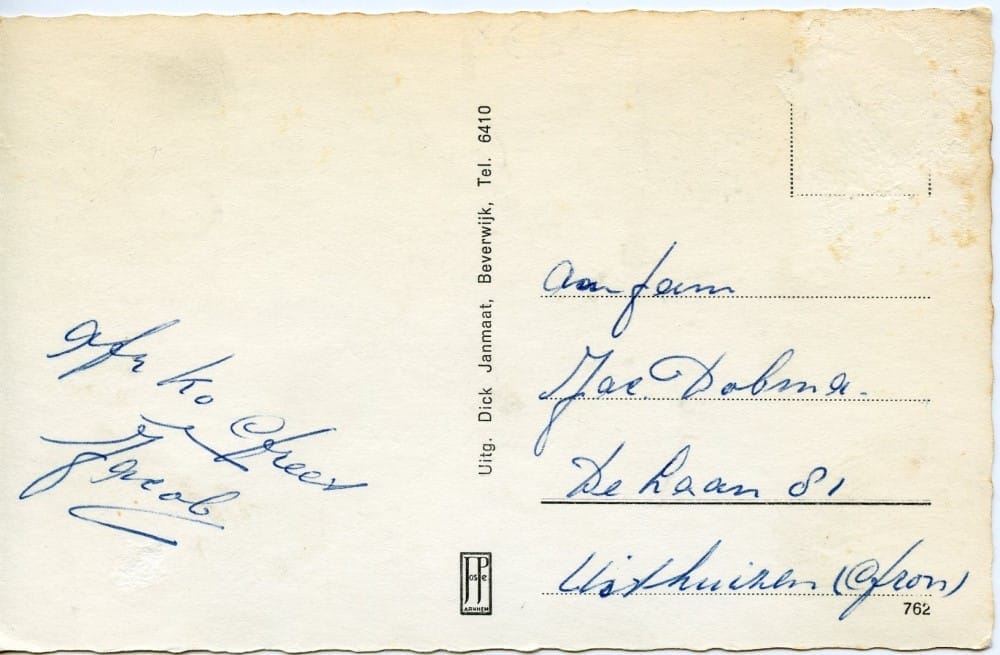 Afz Ko
Grees
Jacob
Uitg. Dick Janmaat, Beverwijk, Tel. 6410
JosPe
ARNHEM
Aan fam
Jac. Dobma.
De Laan 81
Uithuizen (Gron)
762